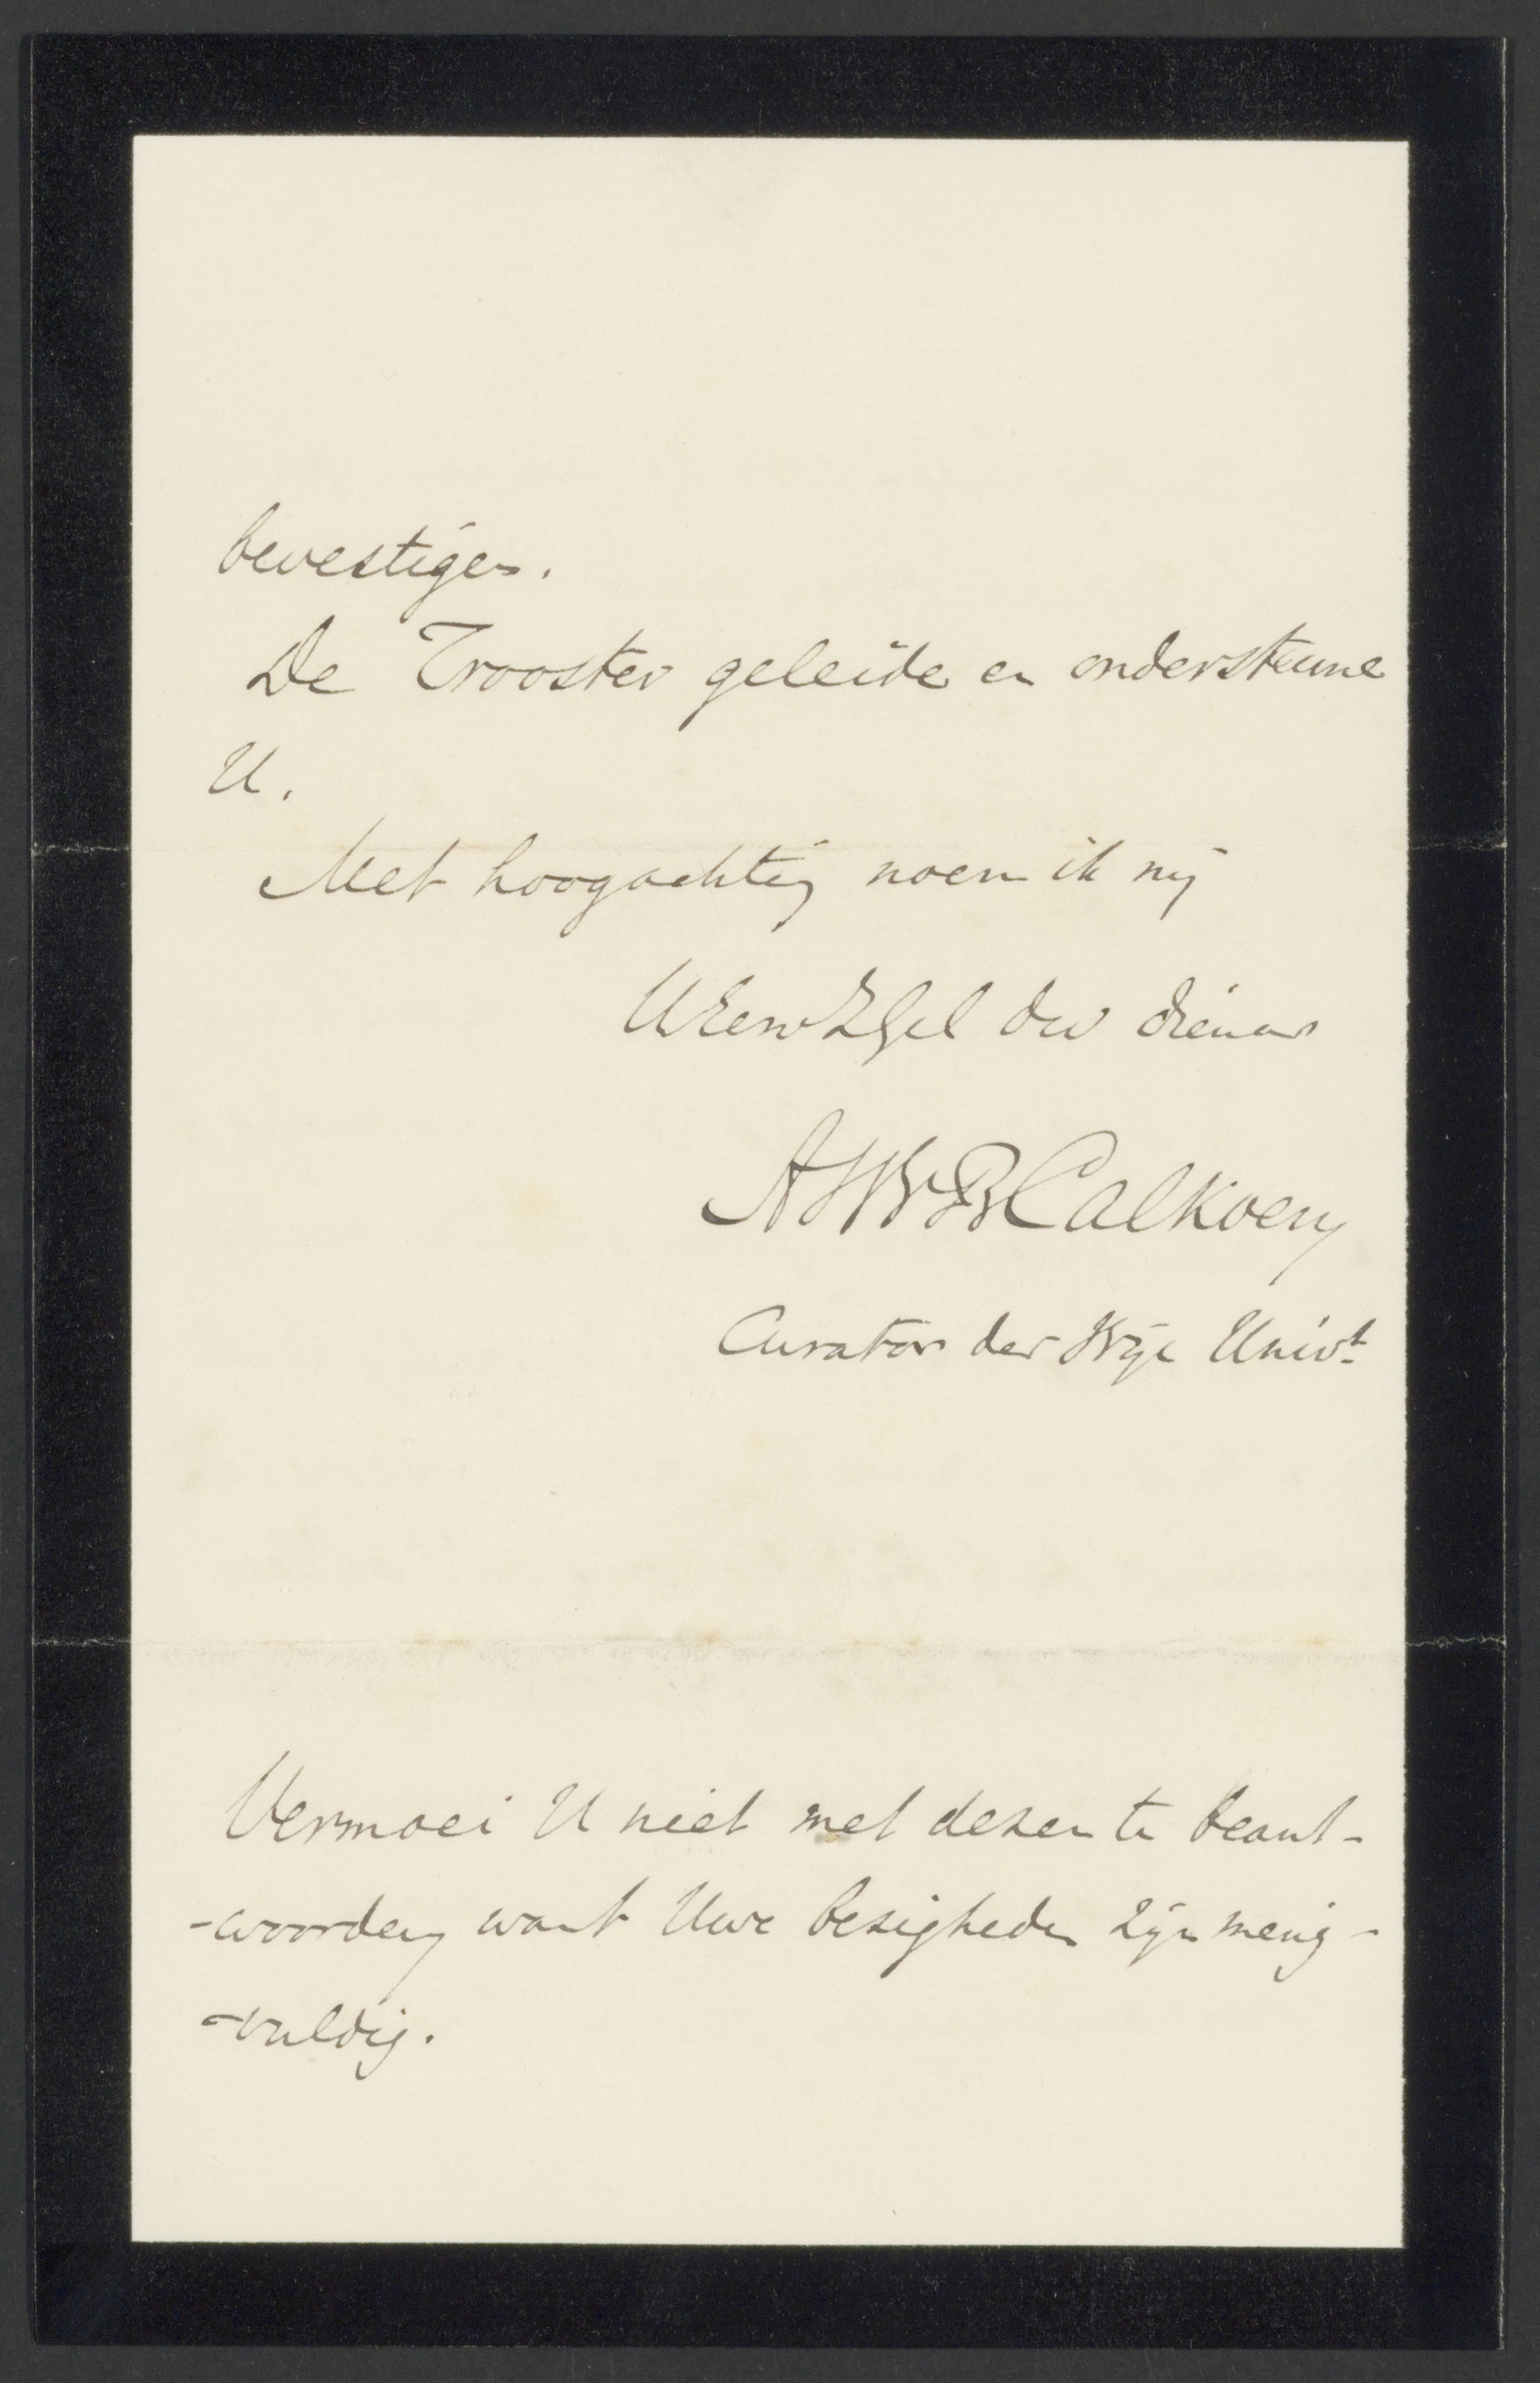 bevestigen.
De Trooster geleide en ondersteune
U.
Met hoogachting noem ik mij
UEerwZGel dw dienaar
AWvBCalkoen
Curator der Vrije Univt.
Vermoei U niet met dezen te beant-
-woorden want Uwe bezigheden zijn menig-
-vuldig.